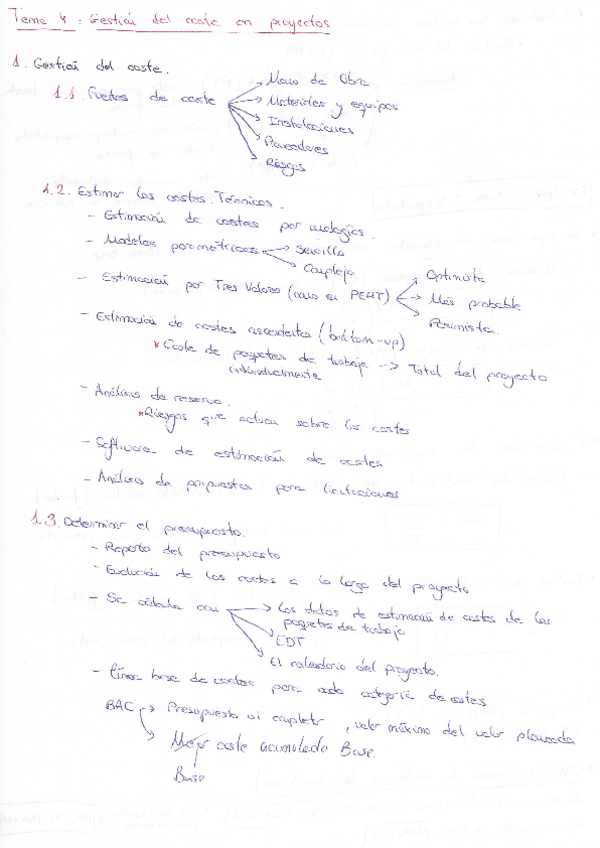 Tema 4: Gestión del coste en proyectos
1. Gestión del coste.
1.1. Fuentes de coste → Mano de Obra
→ Materiales y equipos
→ Instalaciones
→ Proveedores
→ Riesgos
1.2. Estimar los costes. Técnicas.
- Estimación de costes por analogías.
- Modelos paramétricos → Sencillo
→ Complejo
- Estimación por Tres Valores (como el PERT) → Optimista
→ Más probable
→ Pesimista.
- Estimación de costes ascendentes (bottom-up)
* Coste de paquetes de trabajo individualmente → Total del proyecto
- Análisis de reserva.
* Riesgos que actúan sobre los costes
- Software de estimación de costes
- Análisis de propuestas para licitaciones
1.3. Determinar el presupuesto.
- Reparto del presupuesto
- Evolución de los costes a lo largo del proyecto
- Se calcula con → Los datos de estimación de costes de los
paquetes de trabajo
→ EDT
→ El calendario del proyecto.
- Línea base de costes para cada categoría de costes
BAC → Presupuesto al completar, valor máximo del valor planeado
→ Mejor coste acumulado Base.
Base